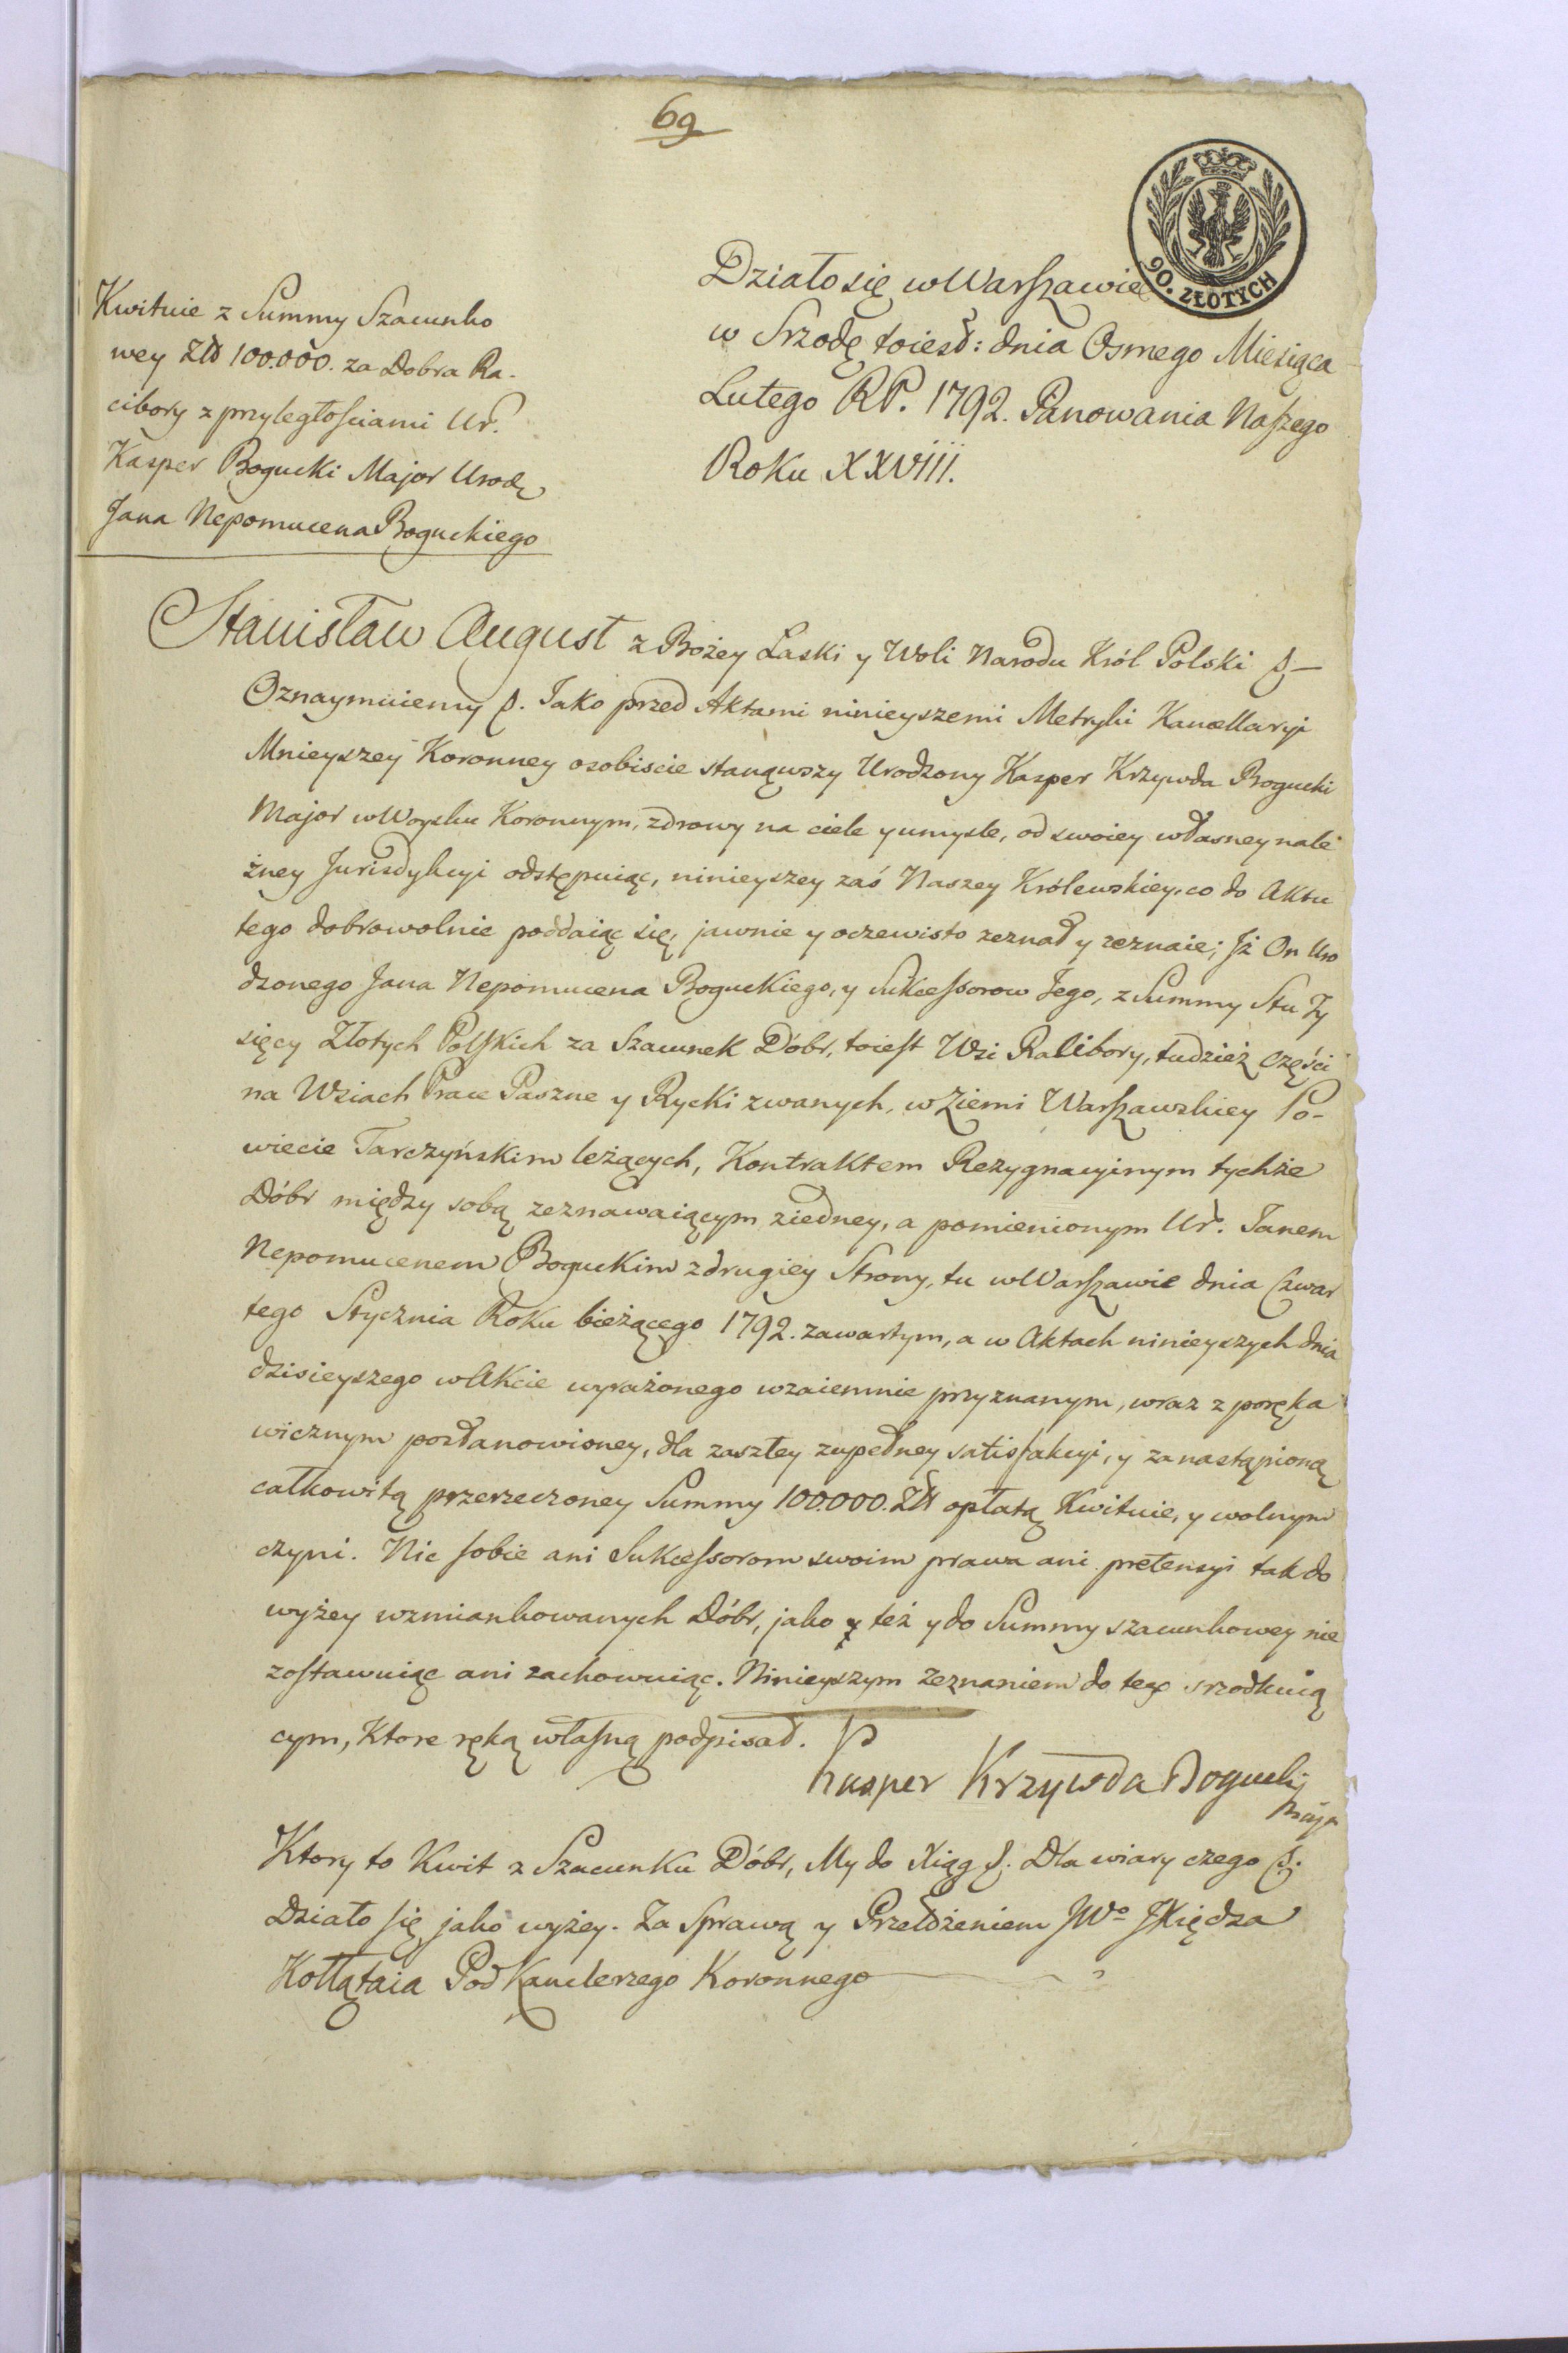 69
90. ZŁOTYCH
Działo się w Warszawie
w Srzodę toiest: dnia Osmego Miesiąca
Lutego RP. 1792. Panowania Naszego
Roku XXVIII.
Kwituie z Summy Szacunko
wey Złł 100.000. za Dobra Ra-
cibory z przyległościami Ur.
Kasper Bogucki Major Urodz
Jana Nepomucena Boguckiego
Stanisław August z Bożey Łaski y Woli Narodu Król Polski &
Oznaymuiemy &. Jako przed Aktami ninieyszemi Metryki Kancellaryi
Mnieyszey Koronney osobiscie stanąwszy Urodzony Kasper Krzywda Bogucki
Major w Woysku Koronnym, zdrowy na ciele y umysle, od swoiey własney nale
żney Jurisdykcyi odstępuiąc, ninieyszey zaś Naszey Królewskiey, co do Aktu
tego dobrowolnie poddaiąc się, jawnie y oczewisto zeznał y zeznaie; Iż On Uro
dzonego Jana Nepomucena Boguckiego, y Sukcessorow Jego, z Summy Stu Ty
sięcy Złotych Polskich za Szacunek Dóbr, toiest Wsi Racibory, tudzież części
na Wsiach Prace Paszne y Rycki zwanych, w Ziemi Warszawskiey Po-
wiecie Tarczyńskim leżących, Kontraktem Rezygnacyinym tychże
Dóbr między sobą zeznawaiącym ziedney, a pomienionym Ur. Janem
Nepomucenem Boguckim z drugiey Strony, tu w Warszawie dnia Czwar
tego Stycznia Roku bieżącego 1792. zawartym, a w Aktach ninieyszych dnia
dzisieyszego w Akcie wyrażonego wzaiemnie przyznanym, wraz z poręka
wicznym postanowioney, dla zaszłey zupełney satisfakcyi, y za nastąpioną
całkowitą przerzeczoney Summy 100.000. Złł opłatą Kwituie, y wolnym
czyni. Nic sobie ani Sukcessorom swoim prawa ani pretensyi tak do
wyżey wzmiankowanych Dóbr, jako też y do Summy szacunkowey nie
zostawuiąc ani zachowuiąc. Ninieyszym Zeznaniem do tego srzodkuią
cym, Ktore ręką własną podpisał.
Kasper Krzywda Bogucki
Major
Ktory to Kwit z Szacunku Dóbr, My do Xiąg &. Dla wiary czego &.
Działo się jako wyżey. Za Sprawą y Przełożeniem JWo JXiędza
Kołłątaia Pod Kanclerzego Koronnego